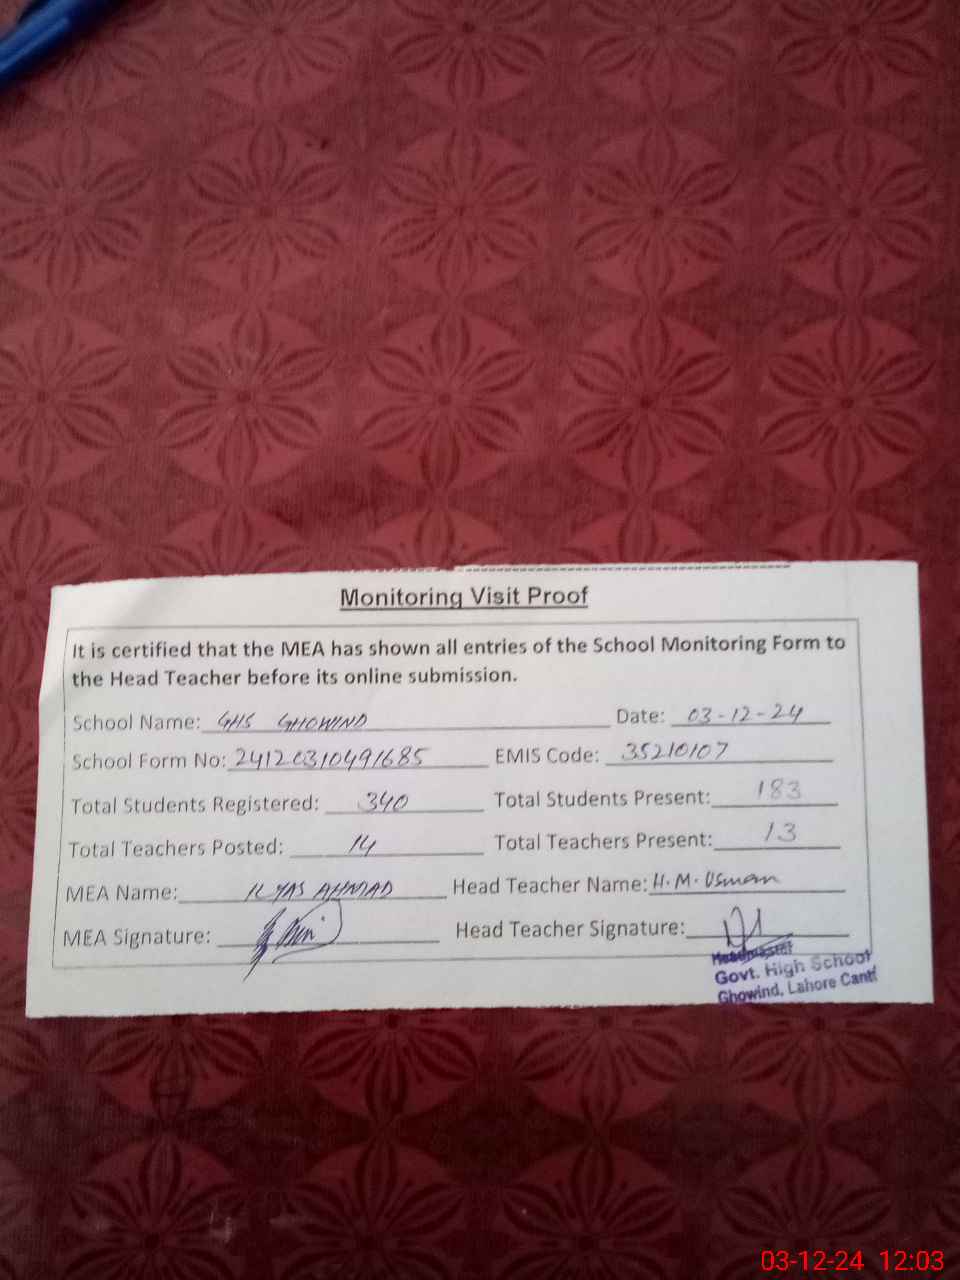 Monitoring Visit Proof
It is certified that the MEA has shown all entries of the School Monitoring Form to
the Head Teacher before its online submission.
School Name: GHS GHOWIND Date: 03-12-24
School Form No: 24120310491685 EMIS Code: 35210107
Total Students Registered: 340 Total Students Present: 183
Total Teachers Posted: 14 Total Teachers Present: 13
MEA Name: ILYAS AHMAD Head Teacher Name: H.M.Usman
MEA Signature: Head Teacher Signature:
Headmaster
Govt. High School
Ghowind, Lahore Cantt
03-12-24 12:03